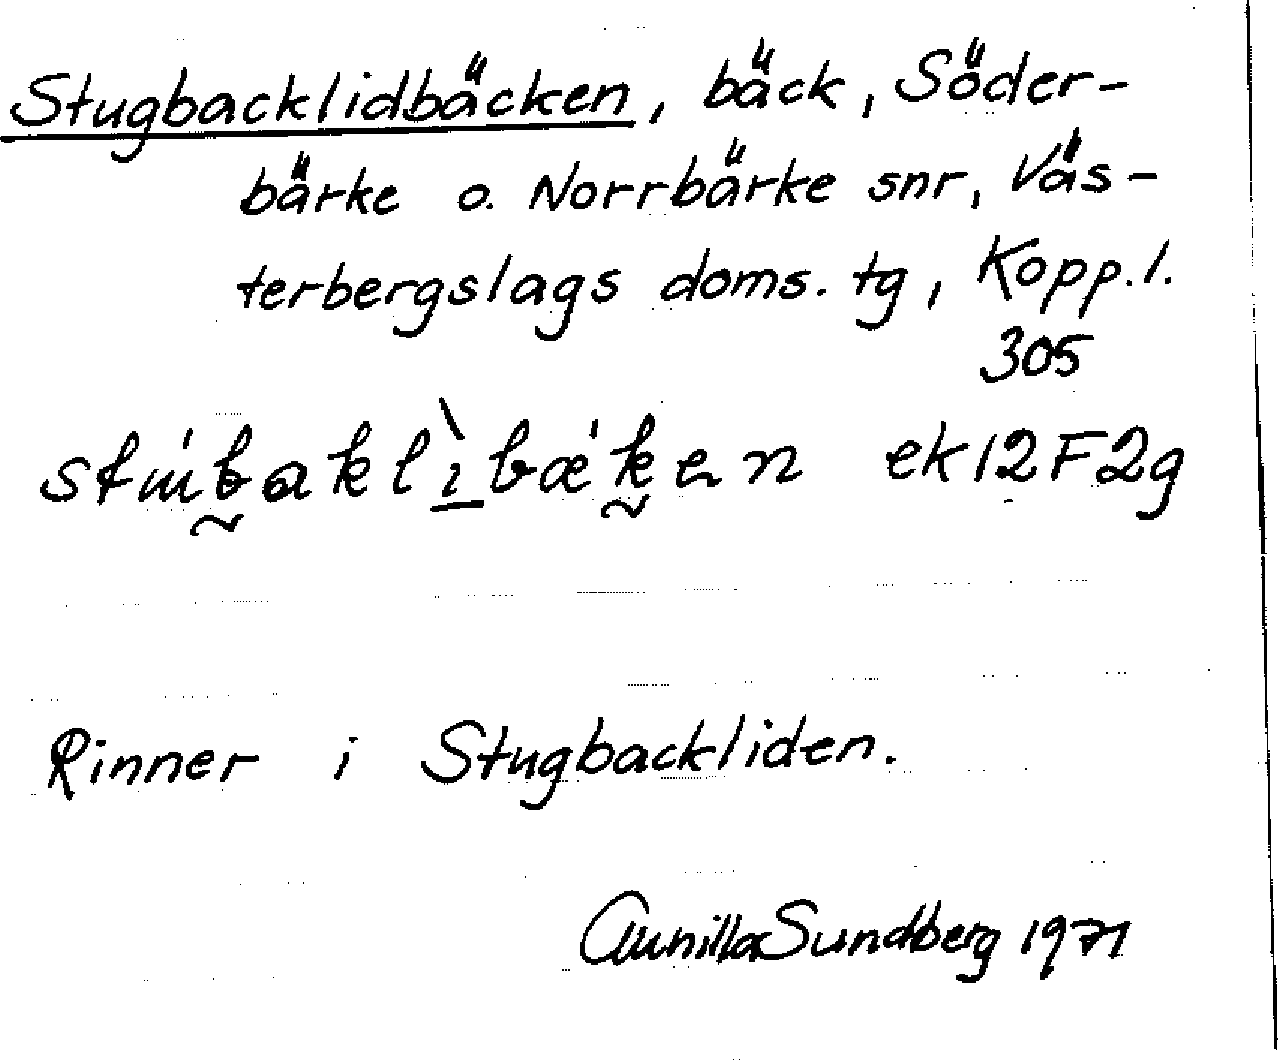 Stugbacklidbäcken, bäck, Söder-
bärke o. Norrbärke snr, Väs-
terbergslags doms. tg, Kopp. l.
305
ek 12F2g
Rinner i Stugbackliden.
Gunilla Sundberg 1971